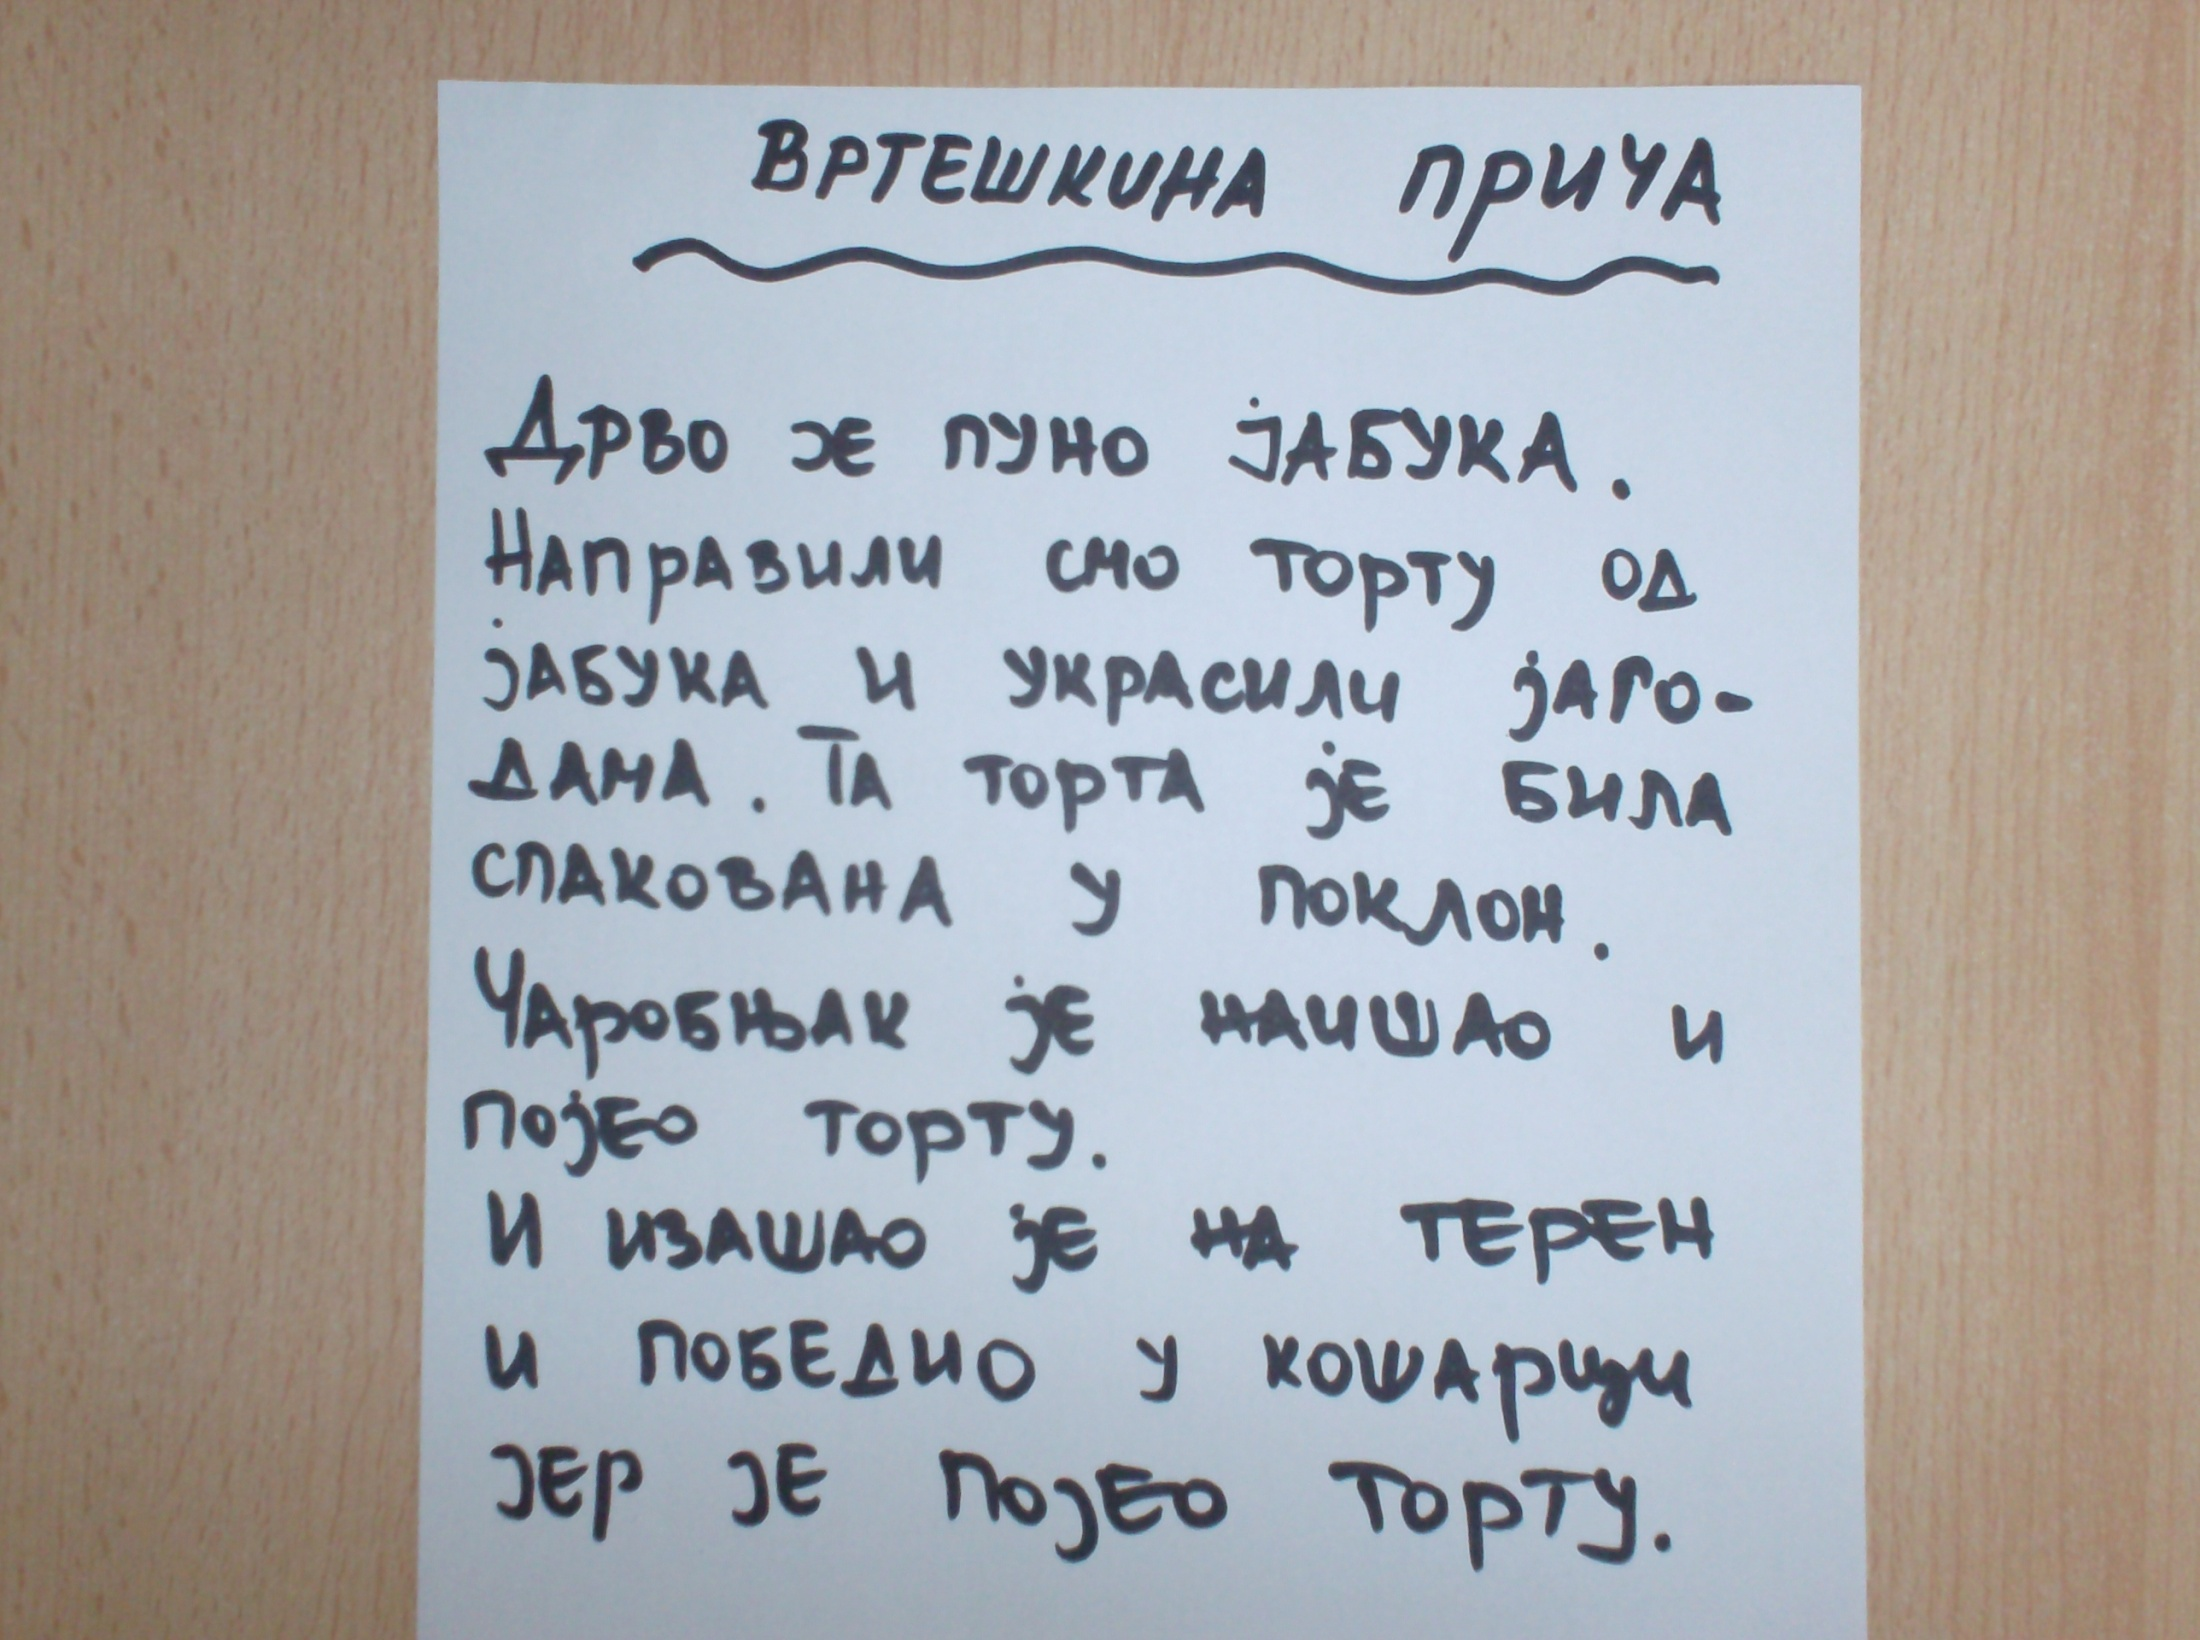 ВРТЕШКИНА ПРИЧА
ДРВО ЈЕ ПУНО ЈАБУКА.
НАПРАВИЛИ СМО ТОРТУ ОД
ЈАБУКА И УКРАСИЛИ ЈАГО-
ДАМА. ТА ТОРТА ЈЕ БИЛА
СПАКОВАНА У ПОКЛОН.
ЧАРОБЊАК ЈЕ НАИШАО И
ПОЈЕО ТОРТУ.
И ИЗАШАО ЈЕ НА ТЕРЕН
И ПОБЕДИО У КОШАРЦИ
ЈЕР ЈЕ ПОЈЕО ТОРТУ.